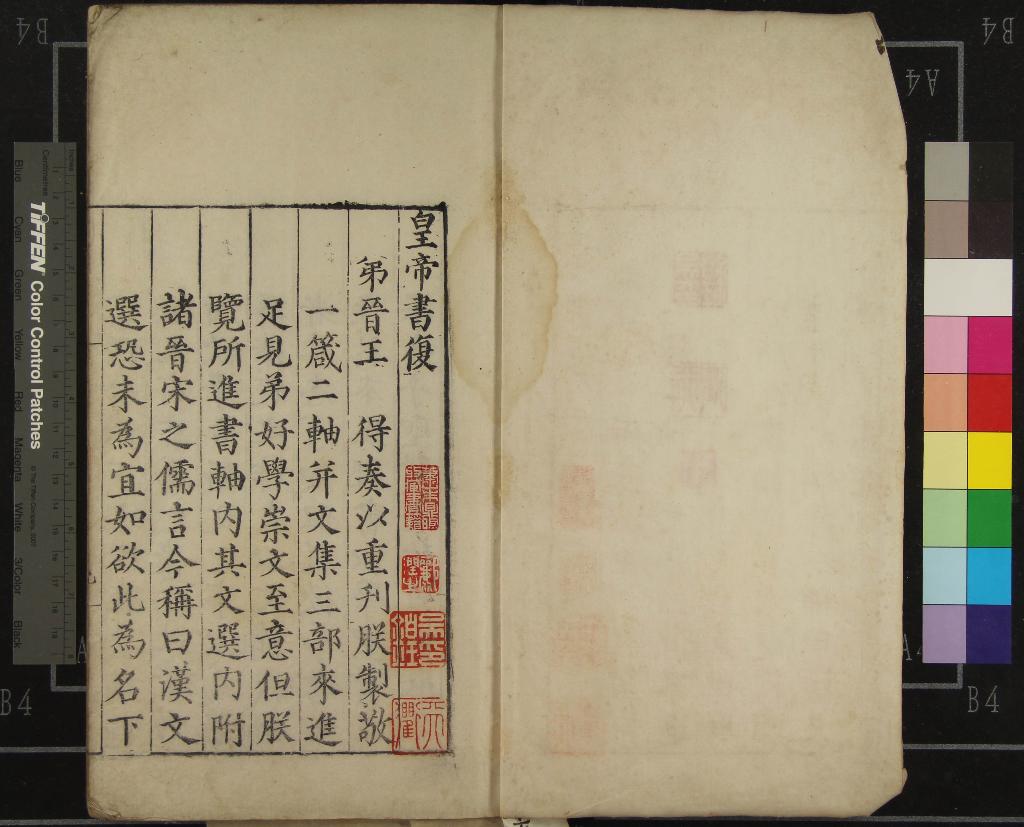 皇帝書復
弟晉王　得奏以重刋朕製敬
一箴二軸并文集三部來進
足見弟好學崇文至意但朕
覽所進書軸内其文選内附
諸晉宋之儒言今稱曰漢文
選恐未為宜如欲此為名下
B4
B4
A4
B4
B4
TIFFEN Color Control Patches
Blue
Cyan
Green
Yellow
Red
Magenta
White
3/Color
Black
Centimetres
Inches